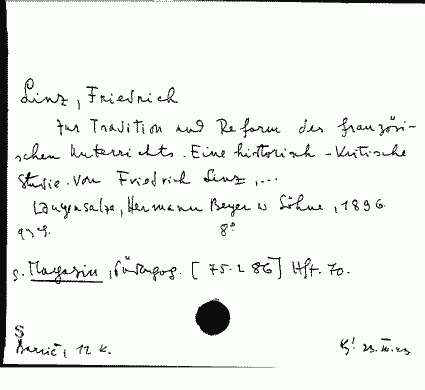 Linz, Friedrich
Zur Tradition und Reform des französi-
schen Unterrichts. Eine historisch-kritische
Studie. Von Friedrich Linz,...
Langensalza, Hermann Beyer u Söhne, 1896.
93 S. 8°
s. Magazin, Pädagog. [75-286] Hft. 70.
S
12 K.